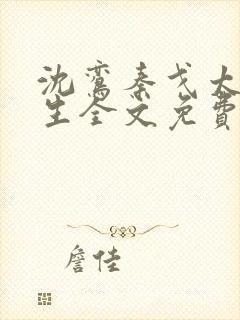 沈鸾秦戈大
生全文免費
詹佳